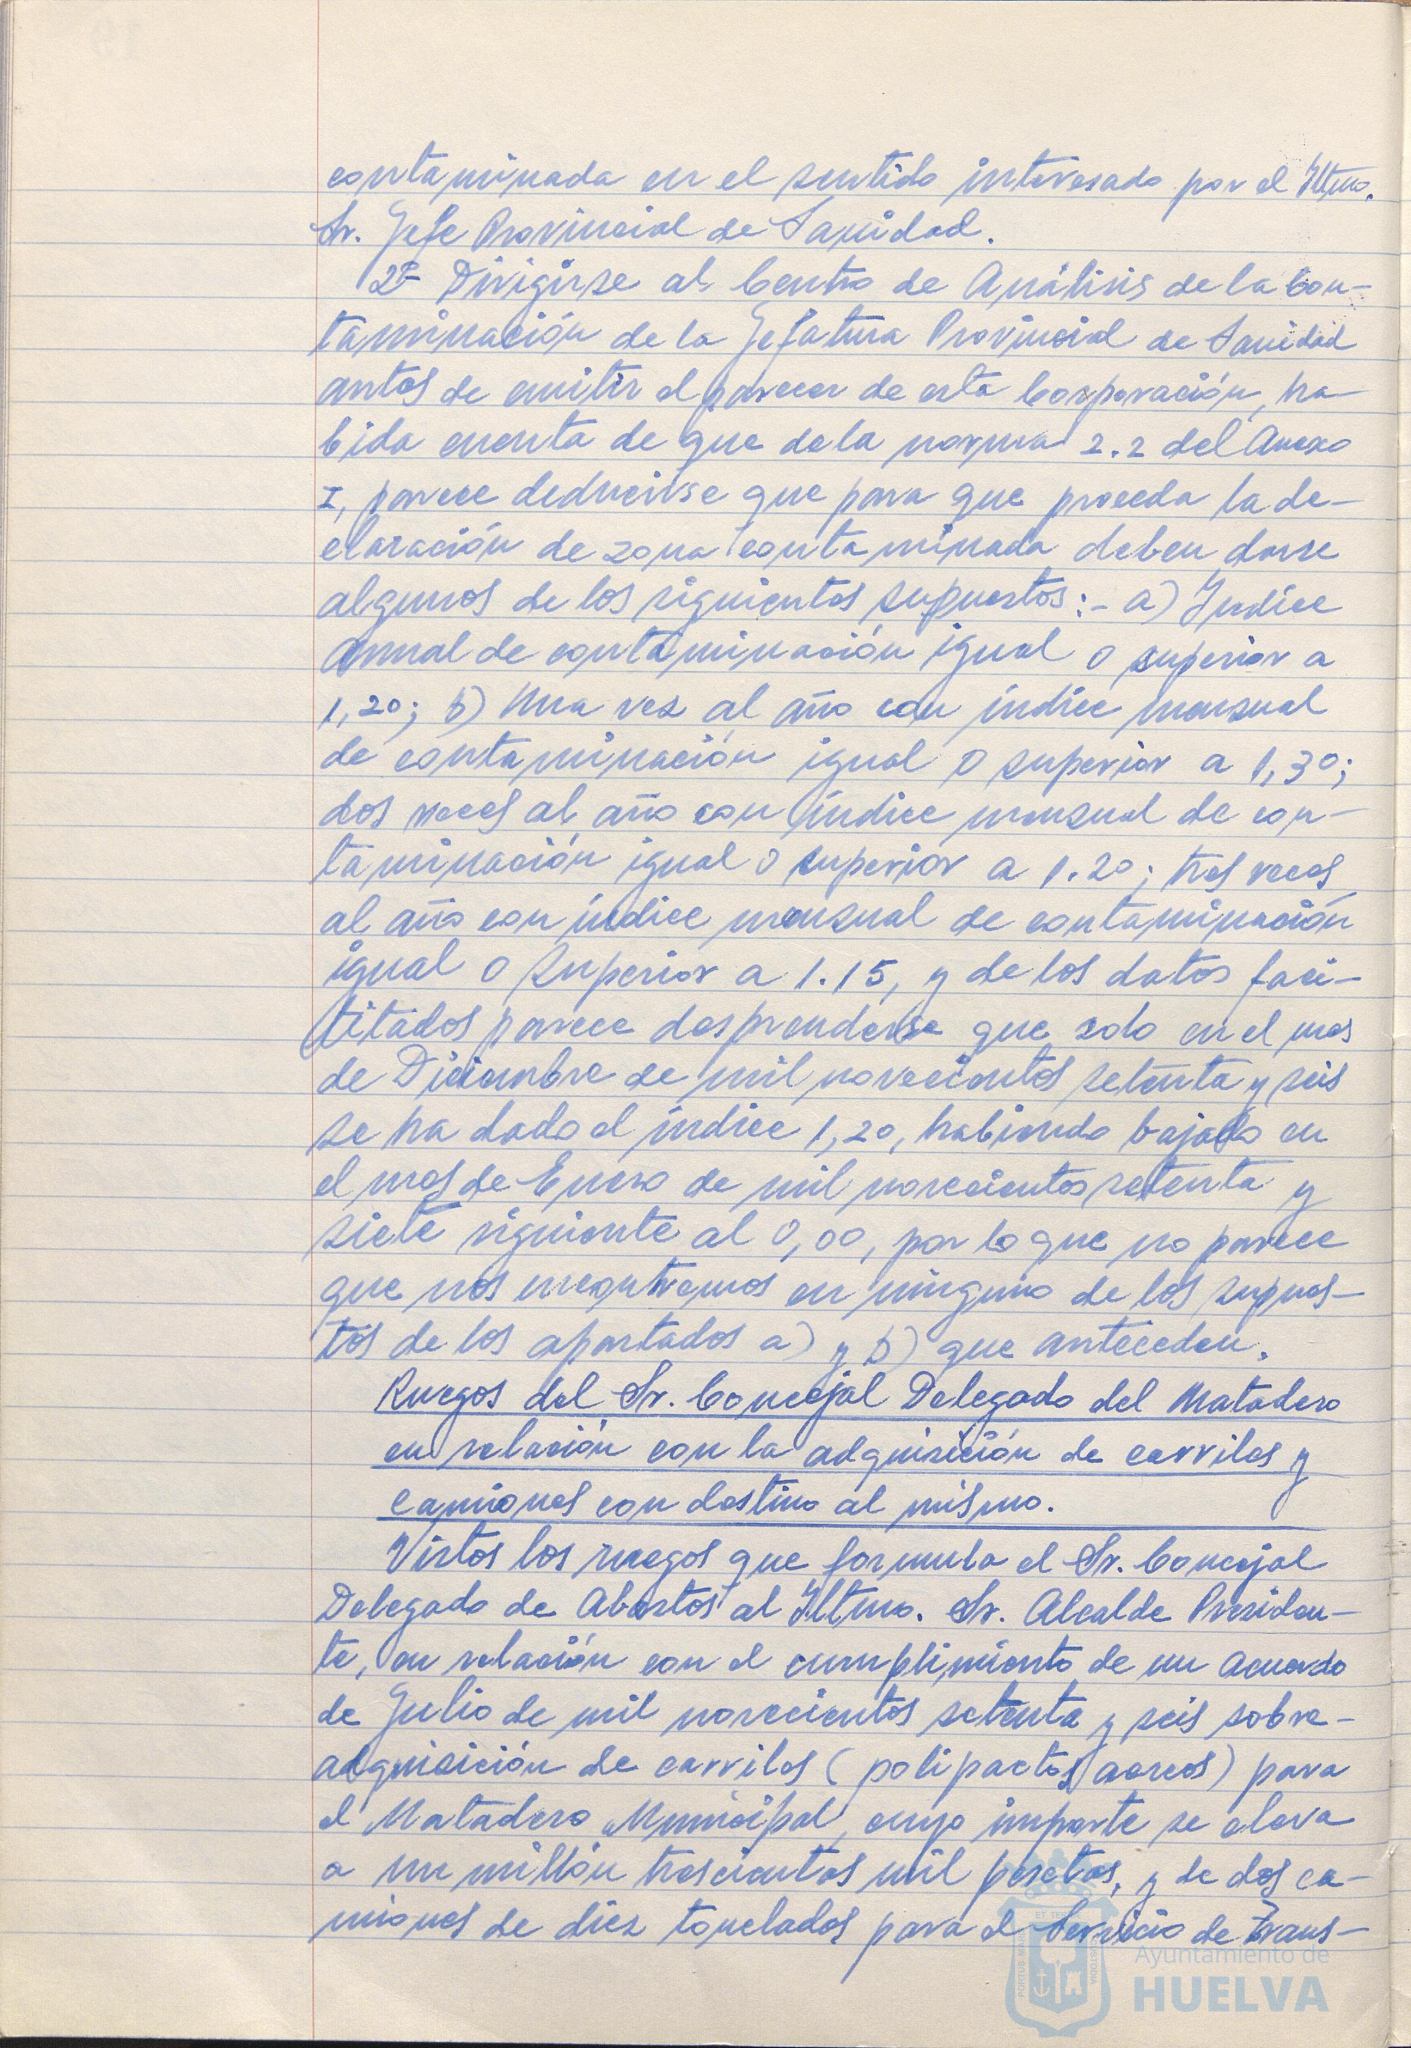 contaminada en el sentido interesado por el Iltmo.
Sr. Jefe Provincial de Sanidad.
2º- Dirigirse al Centro de Análisis de la Con-
taminación de la Jefatura Provincial de Sanidad
antes de emitir el parecer de esta Corporación, ha-
bida cuenta de que de la norma 2.2 del Anexo
I, parece deducirse que para que proceda la de-
claración de zona contaminada deben darse
algunos de los siguientes supuestos:- a) Indice
anual de contaminación igual o superior a
1,20; b) Una vez al año con índice mensual
de contaminación igual o superior a 1,30;
dos veces al año con índice mensual de con-
taminación igual o superior a 1.20; tres veces
al año con índice mensual de contaminación
igual o superior a 1.15, y de los datos faci-
litados parece desprenderse que solo en el mes
de Diciembre de mil novecientos setenta y seis
se ha dado el índice 1,20, habiendo bajado en
el mes de Enero de mil novecientos setenta y
siete siguiente al 0,00, por lo que no parece
que nos encontremos en ninguno de los supues-
tos de los apartados a) y b) que anteceden.
Ruegos del Sr. Concejal Delegado del Matadero
en relación con la adquisición de carriles y
camiones con destino al mismo.
Vistos los ruegos que formula el Sr. Concejal
Delegado de Abastos al Iltmo. Sr. Alcalde Presiden-
te, en relación con el cumplimiento de un acuerdo
de Julio de mil novecientos setenta y seis sobre-
adquisición de carriles (polipactos aereos) para
el Matadero Municipal, cuyo importe se eleva
a un millón trescientas mil pesetas, y de dos ca-
miones de diez toneladas para el Servicio de Trans-
Ayuntamiento de
HUELVA